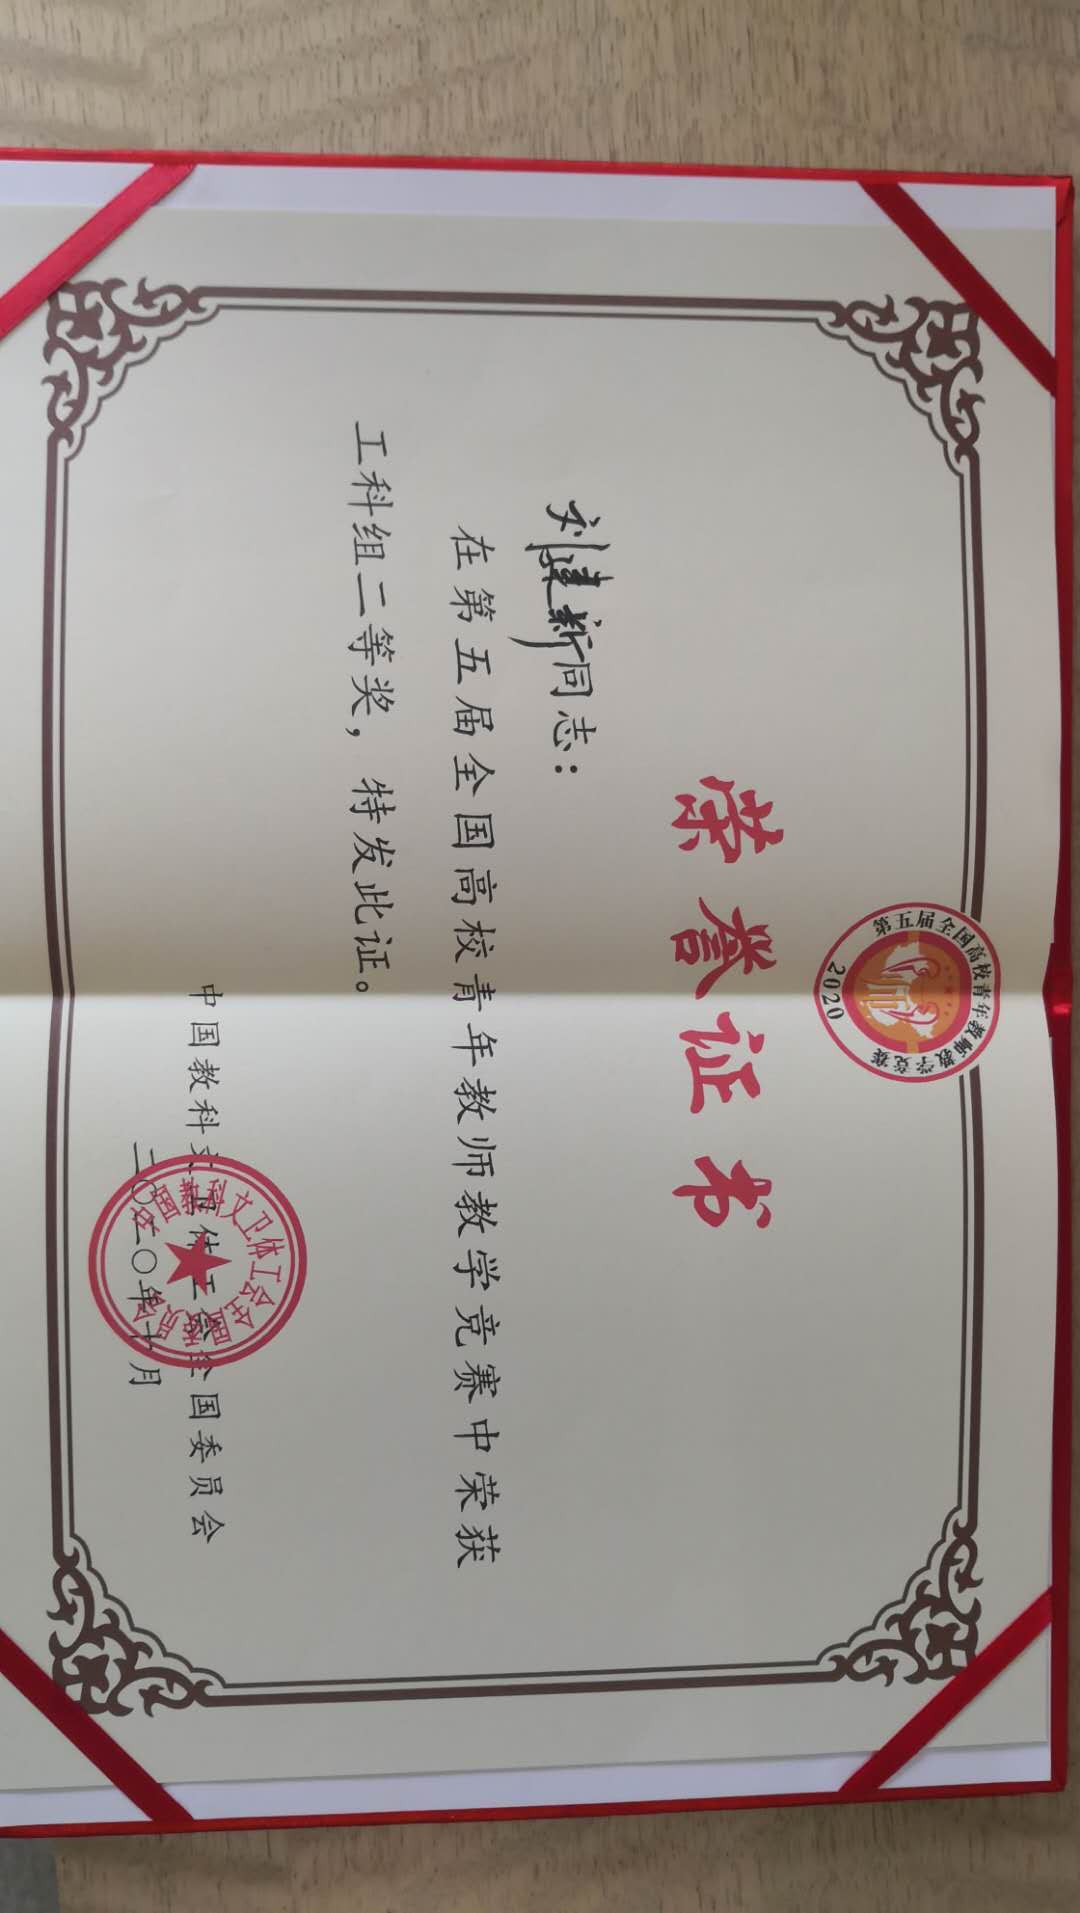 第五届全国高校青年教师教学竞赛
2020
荣誉证书
刘建新同志：
在第五届全国高校青年教师教学竞赛中荣获
工科组二等奖，特发此证。
中国教科文卫体工会全国委员会
二〇二〇年十月
中国教科文卫体工会全国委员会